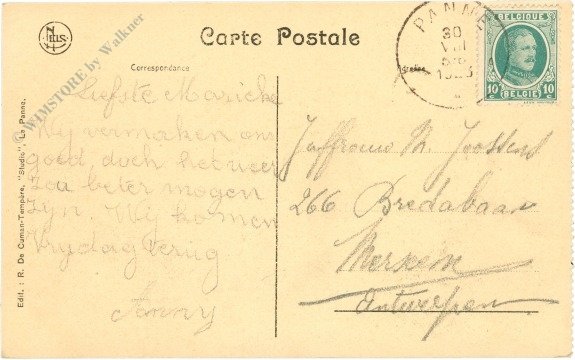 NELS
Carte Postale
Correspondance
Adresse
PANNE
30
VIII
BELGIQUE
10 c 10 c
BELGIË
© WIMSTORE by Walkner
Edit. : R. De Cuman-Tempère, "Studio", La Panne.
Liefste Marieke
Wij vermaken ons
goed doch het weer
zou beter mogen
zijn. Wij komen
Vrijdag terug
Anny
Juffrouw M. Joostens
266 Bredabaan
Merxem
Antwerpen